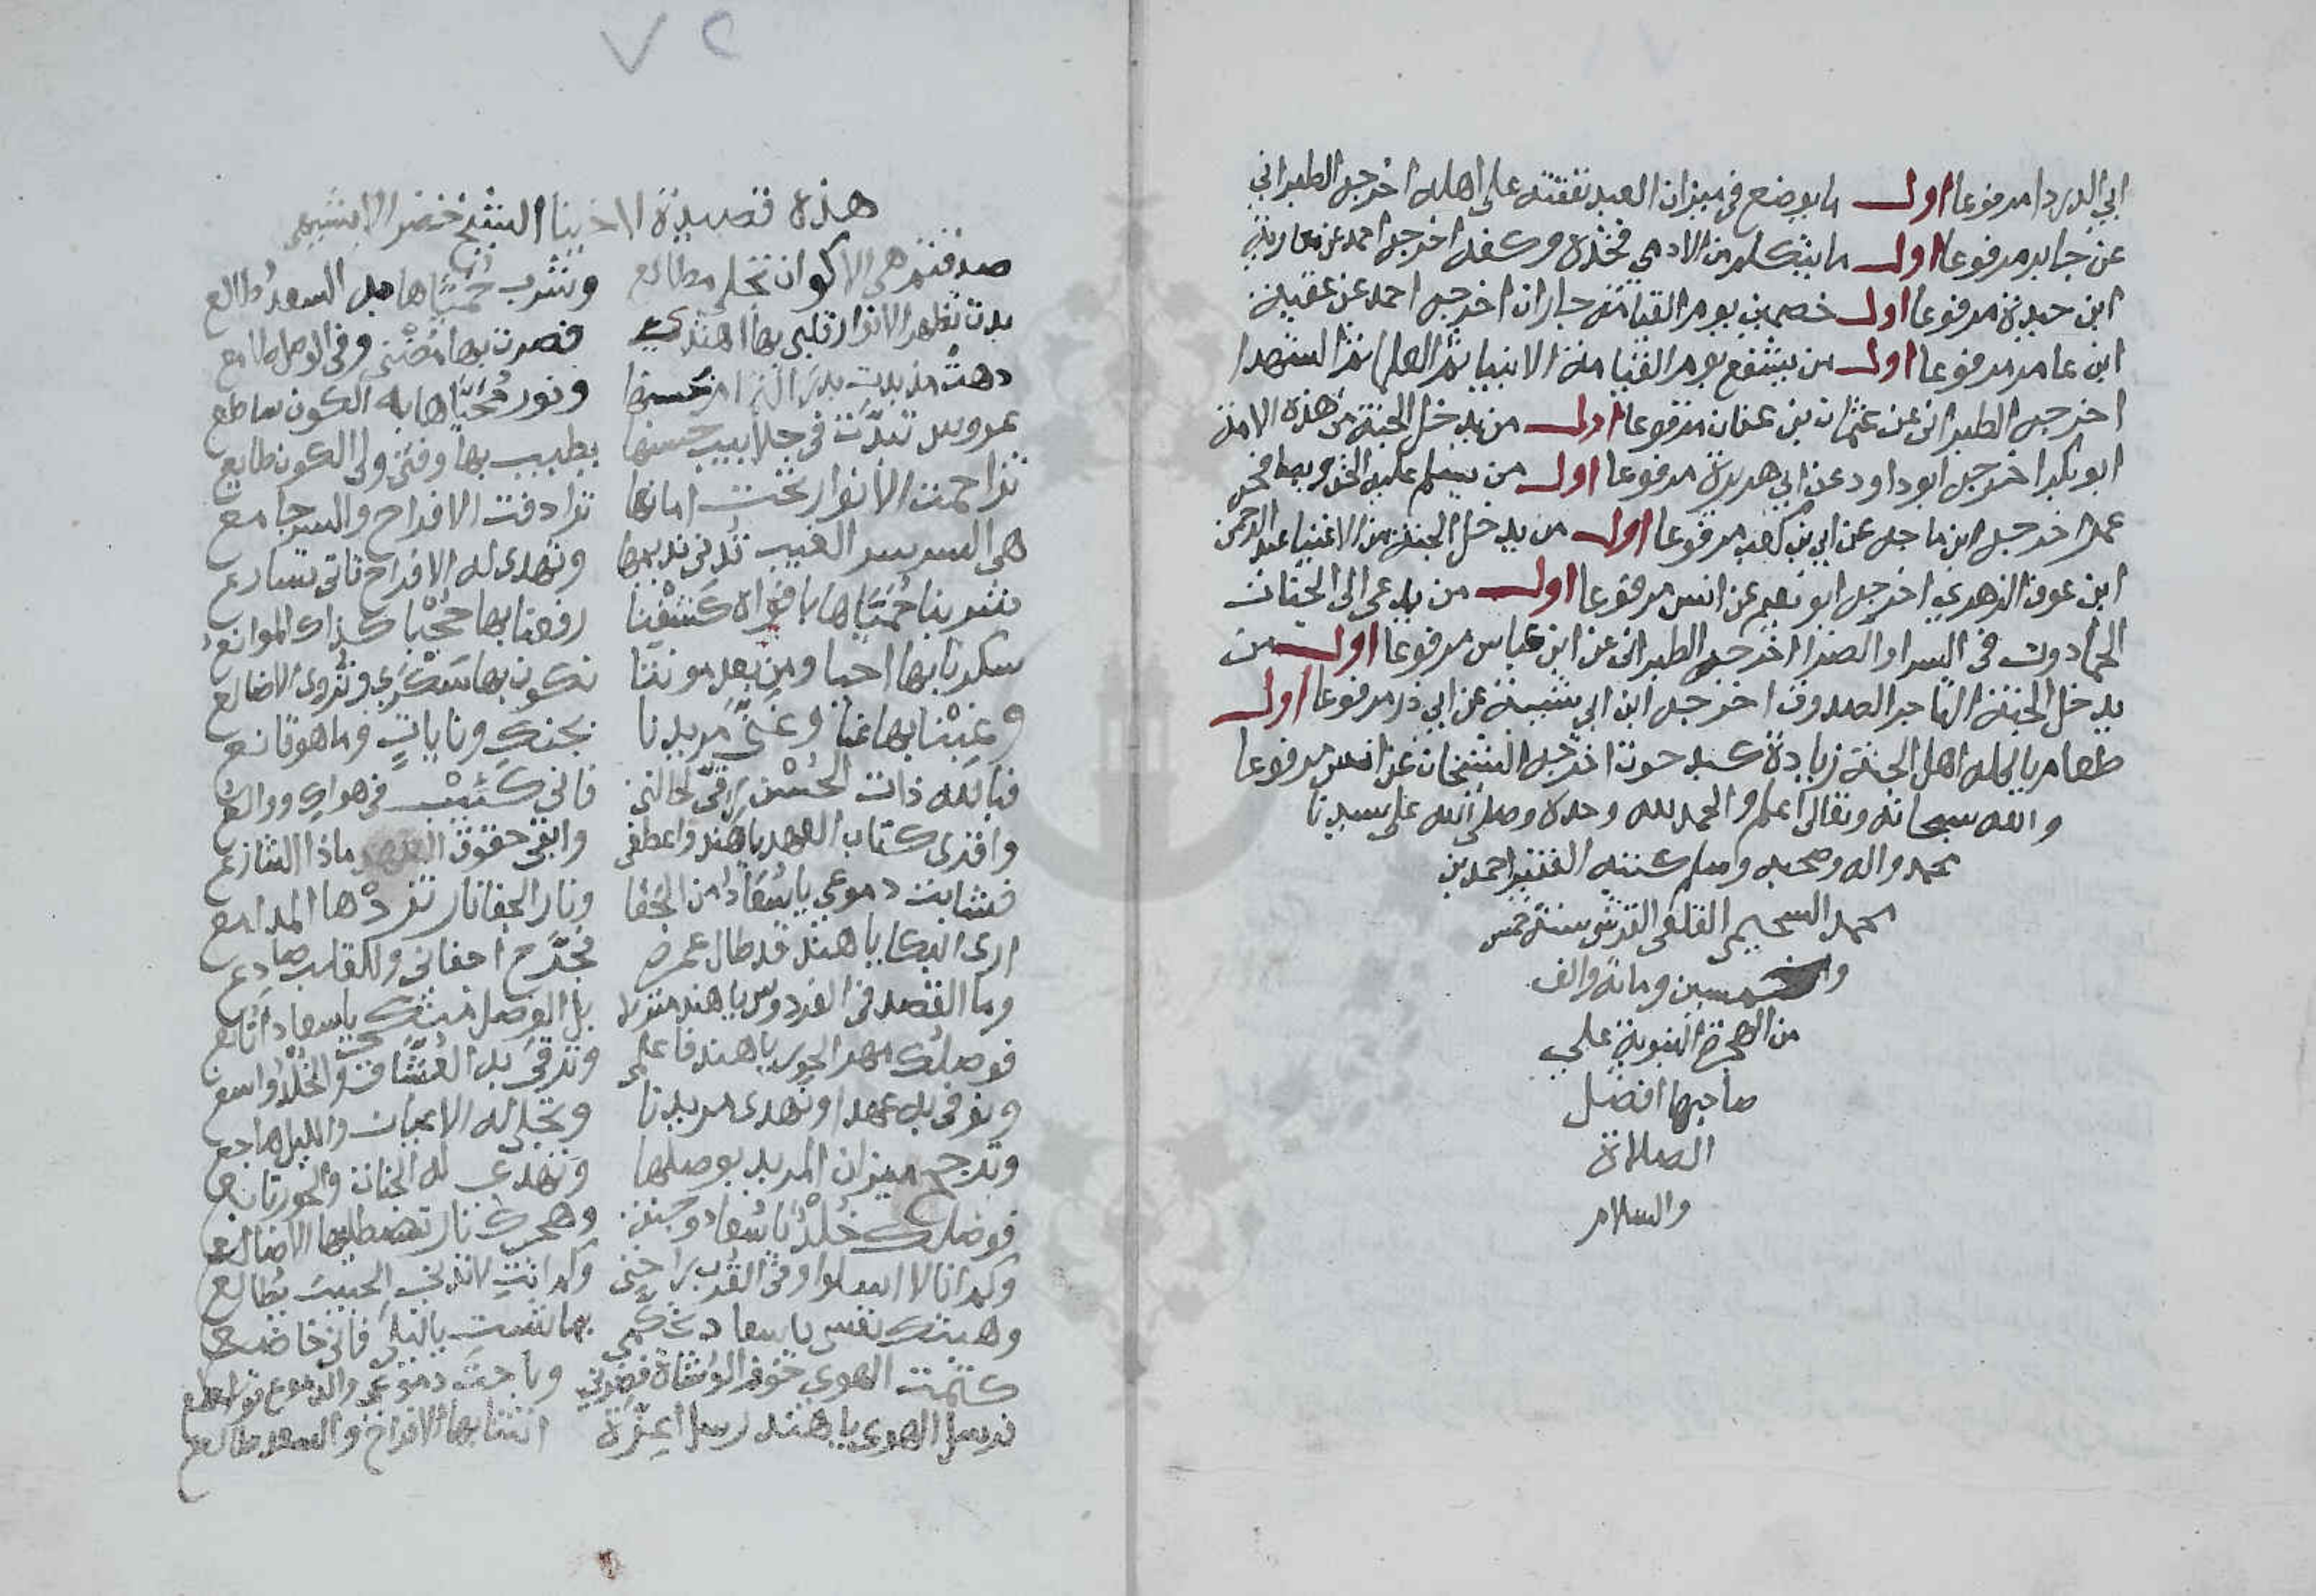 ابي الدردا مرفوعا اول ما يوضع في ميزان العبد نفقته على اهله اخرجه الطبراني
عن جابر مرفوعا اول ما يتكلم من الادمي فخذه وكفه اخرجه احمد عن معاوية
ابن حيدة مرفوعا اول خصمين يوم القيامة جاران اخرجه احمد عن عقبة
ابن عامر مرفوعا اول من يشفع يوم القيامة الانبيا ثم العلما ثم الشهدا
اخرجه الطبراني عن عثمان بن عفان مرفوعا اول من يدخل الجنة من هذه الامة
ابو بكر اخرجه ابو داود عن ابي هريرة مرفوعا اول من يسلم عليه الحق ويصافحه
عمر اخرجه ابن ماجه عن ابي بن كعب مرفوعا اول من يدخل الجنة من الاغنيا عبد الرحمن
ابن عوف الزهري اخرجه ابو نعيم عن انس مرفوعا اول من يدعى الى الجنات
الحمادون في السرا والضرا اخرجه الطبراني عن ابن عباس مرفوعا اول من
يدخل الجنة التاجر الصدوق اخرجه ابن ابي شيبة عن ابي ذر مرفوعا اول
طعام ياكله اهل الجنة زيادة كبد حوت اخرجه الشيخان عن انس مرفوعا
والله سبحانه وتعالى اعلم والحمد لله وحده وصلى الله على سيدنا
محمد واله وصحبه وسلم كتبه الفقير احمد بن
محمد السحيمي القلعي القرشي سنة خمس
وخمسين ومائة والف
من الهجرة النبوية على
صاحبها افضل
الصلاة
والسلام
٧٢
هذه قصيدة لاخينا الشيخ خضر الابشيهي
هي الاكوان تجلي مطالع ونشرب حميّاها هل السعد طالع
بدت تظهر الانوار قلبي بها اهتدى فصرت بها مضنى وفي الوصل طامع
بدر الـ من حسنها ونور محيّاها به الكون ساطع
عروس تبدّت في جلابيب حسنها يطيب بها وقتي ولي الكون طايع
تزاحمت الانوار تحت امانها ترادفت الافراح والسر جامع
هي السر سر الغيب تدني نديمها وتهدى له الافراح تاتي تسارع
شربنا حميّاها بافواه كشفنا رفعنا بها حجبا كذاك الموانع
سكرنا بها احيا ومن بعد موتنا نكون بها سكرى وتروى الاضالع
وغبنا بها عنا وغنّى مريدنا بجنك ونايات وما هو قانع
فبالله ذات الحسن رقي لحالتي فاني كئيب في هواك ووالع
واقري كتاب العهد يا هند واعطفي وابقي حقوق العهد ماذا التنازع
فشابت دموعي يا سعاد من الجفا ونار الجفا نار تزدها المدامع
ارى البكا يا هند قد طال عمره تجرّح اجفاني وللقلب صادع
وما القصد في الفردوس يا هند منزلا بل الوصل منك يا سعاد انافع
فوصلك مهر الحور يا هند فاعلمي وترقى به العشاق والخلد واسع
ونوفي به عهدا ونهدى مريدنا وتجلى له الاعيان والليل هاجع
وترجح ميزان المريد بوصلها وتهدى له الجنان والحور تابع
فوصلك خلد يا سعاد وجنة وهجرك نار تصطليها الاضالع
وكم انا لا اسلو وفي القرب راحتي وكم انت الحبيب يطالع
وهبتك نفسي يا سعاد تحكمي بما شئت يا ليلى فاني خاضع
كتمت الهوى خوف الوشاة فضرني وباحت دموعي والدموع توابع
نرسل الهوى يا هند رسلا اعزة اتتنا بها الافراح والسعد طالع